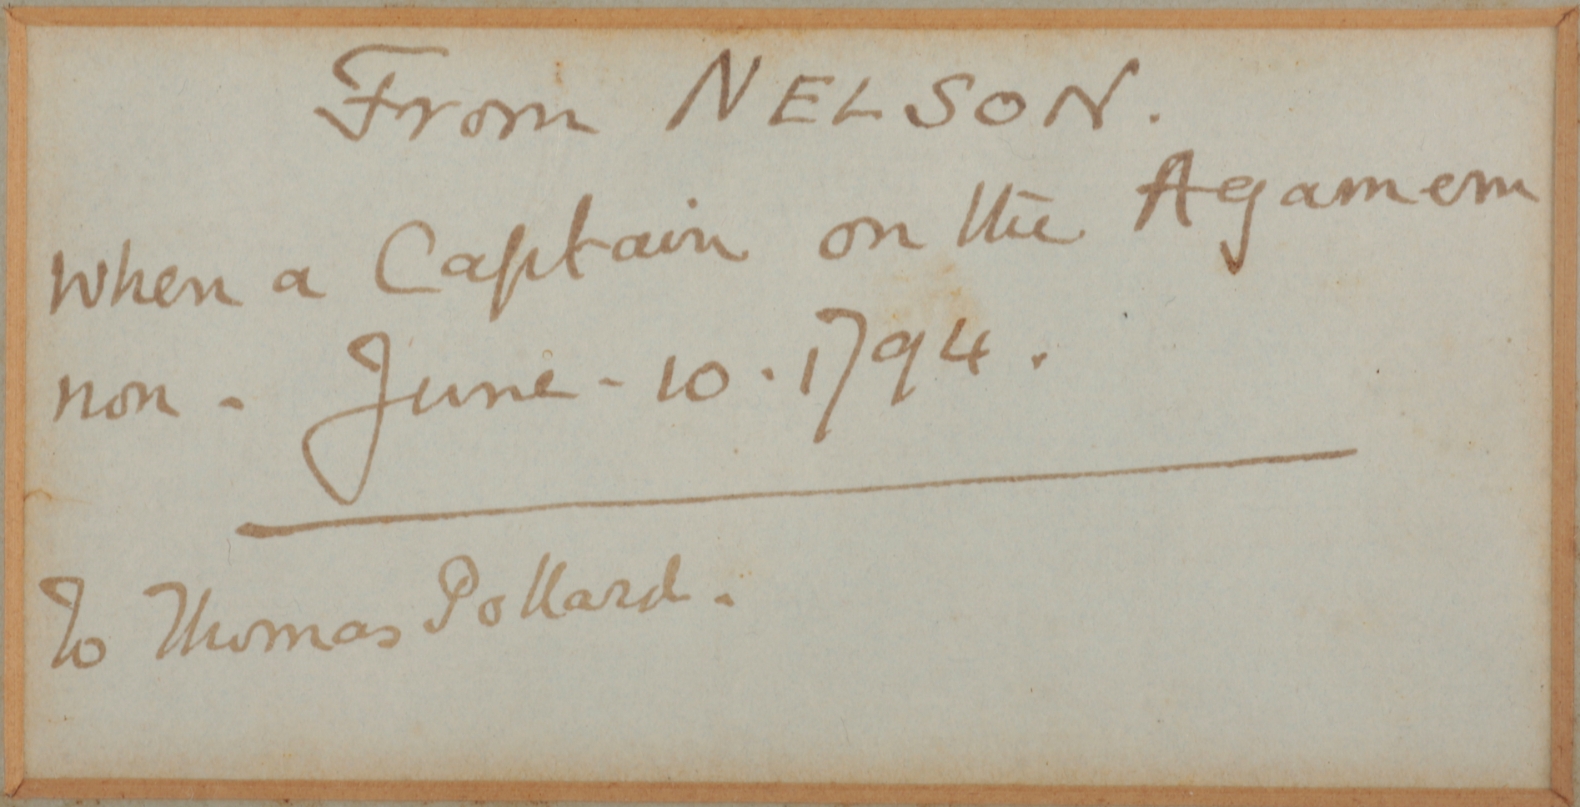 From NELSON.
When a Captain on the Agamem
non - June - 10 . 1794 .
To Thomas Pollard .